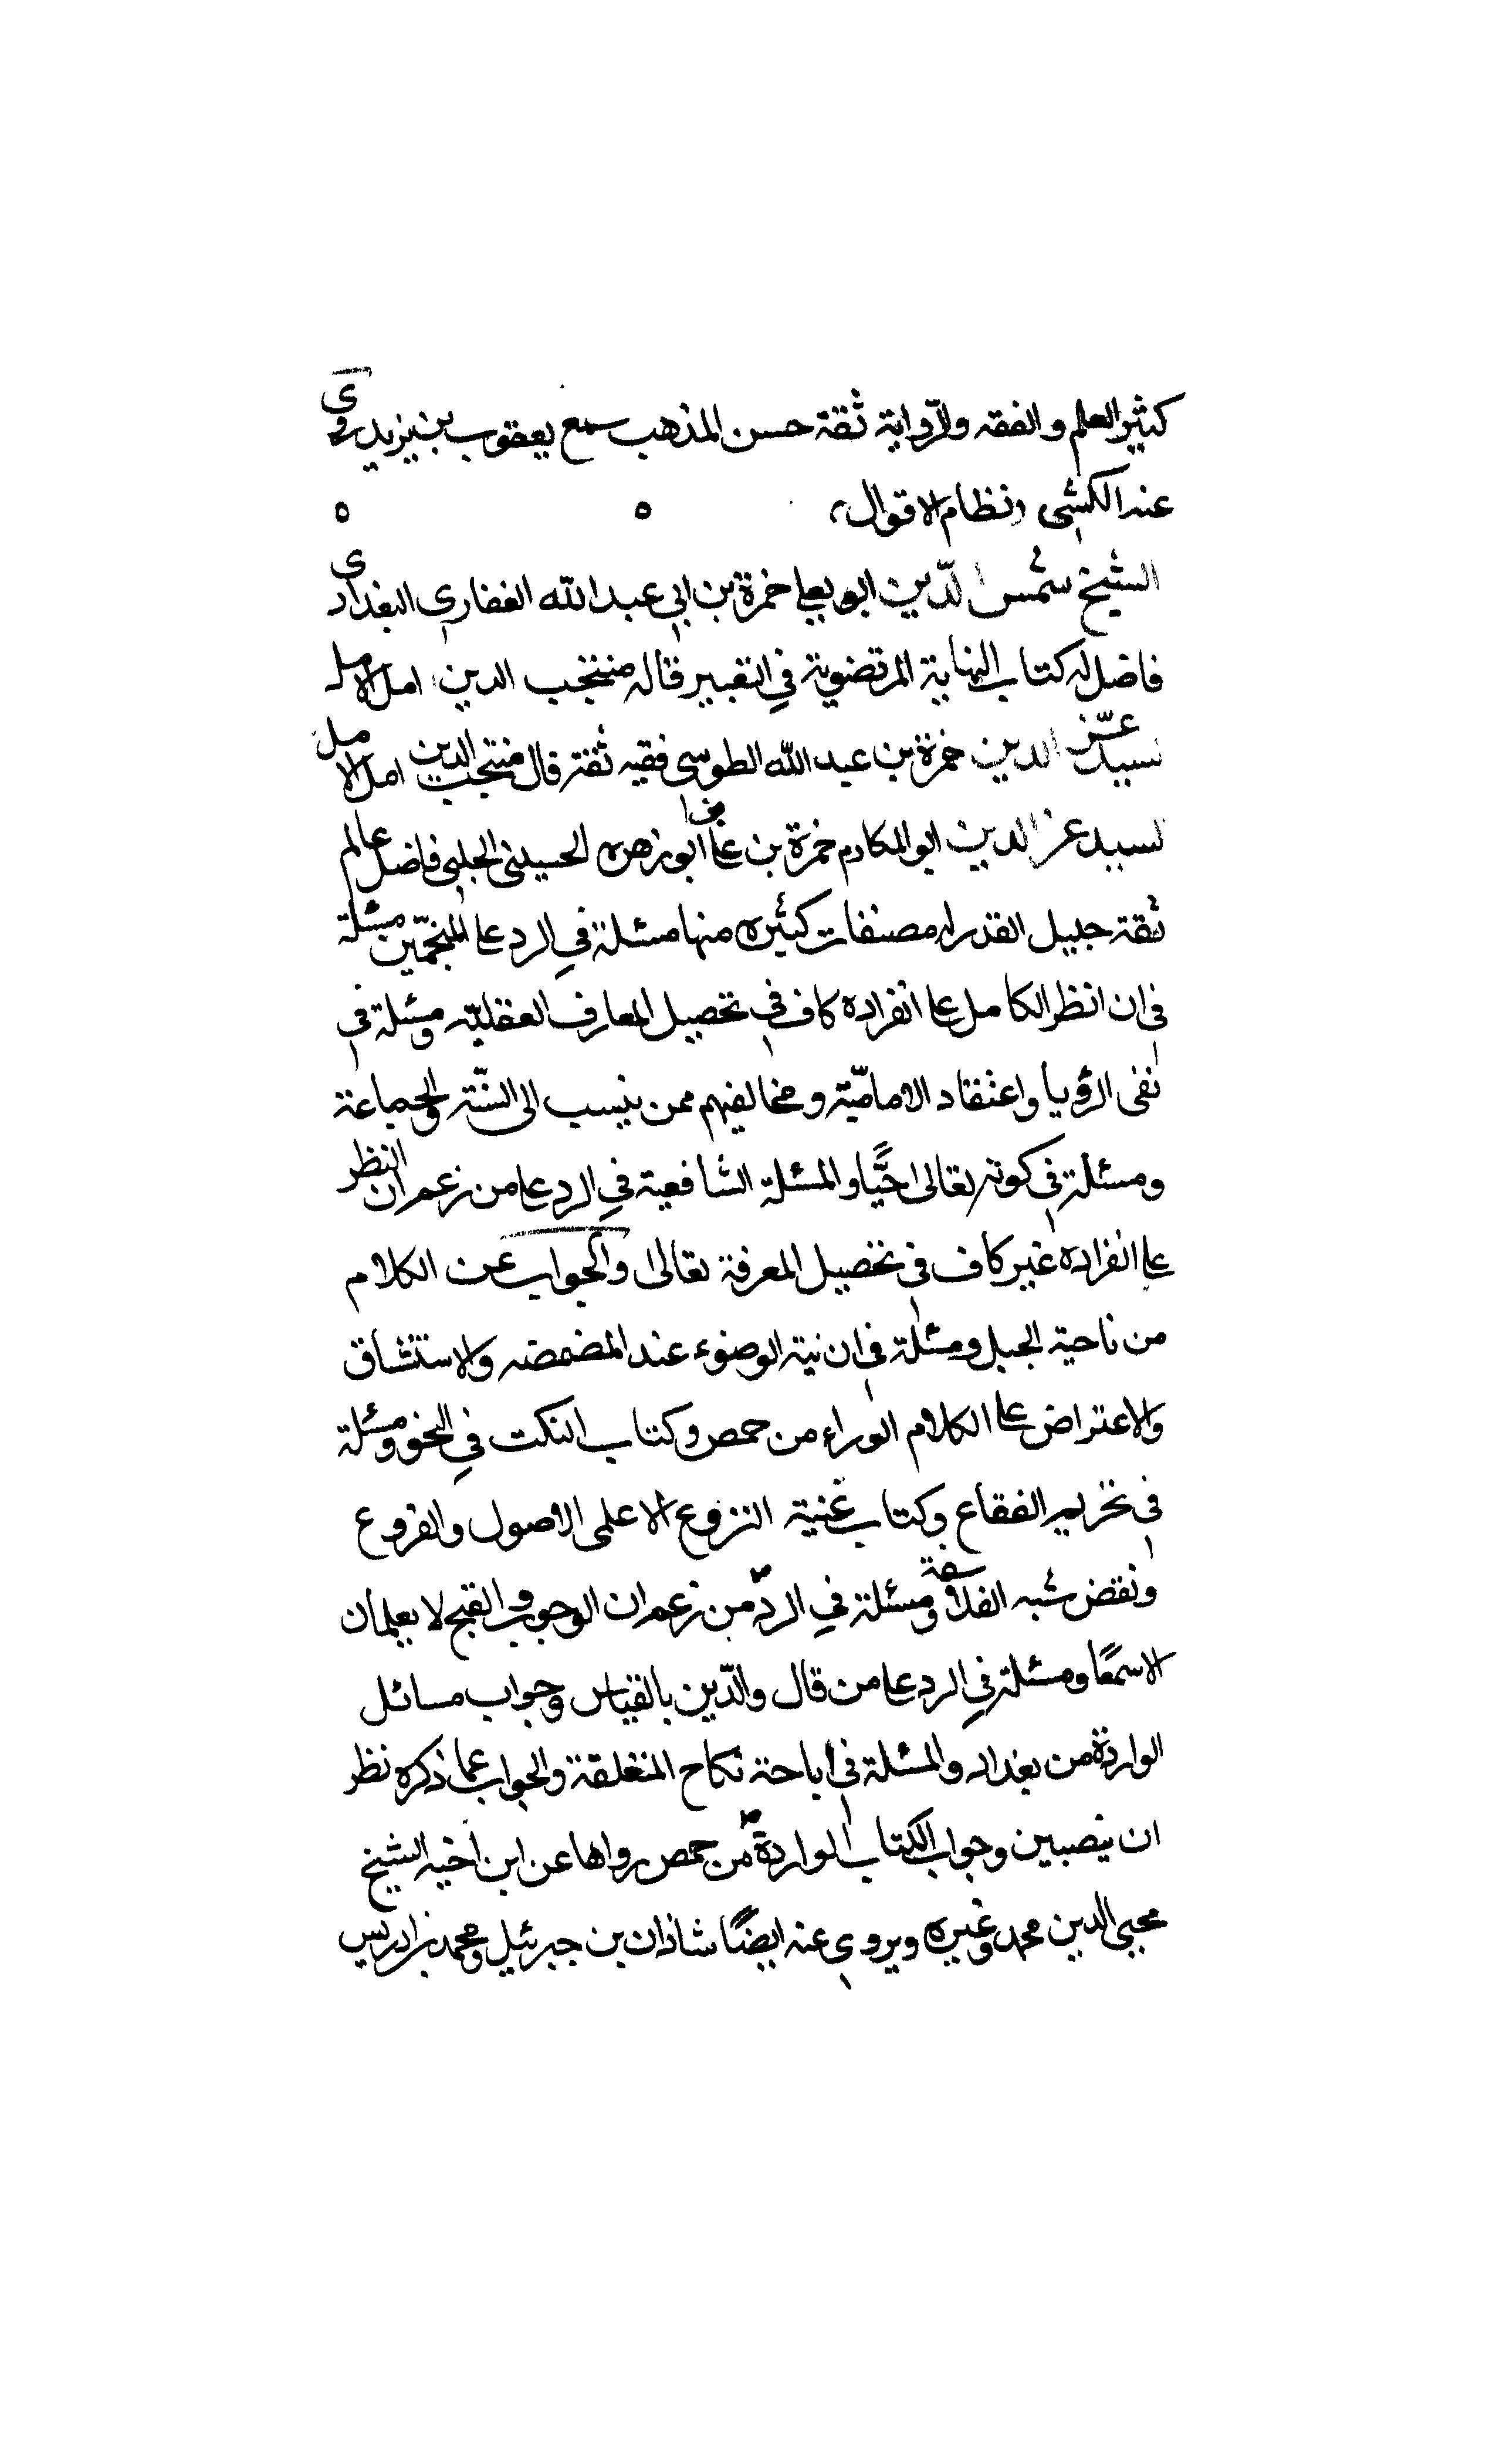 كثير العلم والفقه والرواية ثقة حسن المذهب سمع يعقوب بن يزيد روى
عنه الكشى نظام الاقوال
الشيخ شمس الدّين ابو يعلى حمزة بن ابي عبد الله الغفاري البغدادى
فاضل له كتاب النهاية المرتضوية في التعبير قاله منتجب الدين امل الامل
لسيد عزّ الدين حمزة بن عبد الله الطوسى فقيه ثقة قال منتجب الدين امل الامل
لسيد عز الدين ابو المكارم حمزة بن على ابو زهره الحسينى الحلبى فاضل عالم
ثقة جليل القدر له مصنفات كثيره منها مسئلة في الرد على المنجمّين مسئلة
فى ان النظر الكامل على انفراده كاف فى تحصيل المعارف العقليّه ومسئلة فى
نفى الرؤيا واعتقاد الاماميّة ومخالفيهم ممن ينسب الى السنّة والجماعة
ومسئلة فى كونه تعالى حيًّا والمسئلة الشافعية في الرد على من زعم ان النظر
على انفراده غير كاف فى تحصيل المعرفة تعالى والجواب عن الكلام
من ناحية الجبل ومسئلة فى ان نية الوضوء عند المضمضه والاستنشاق
والاعتراض على الكلام الوراء من حمص وكتاب النكت في النحو ومسئلة
فى تحريم الفقاع وكتاب غنية النزوع الا علمى الاصول والفروع
ونقض شبه الفلاسفة ومسئلة في الردّ من زعم ان الوجوب والقبح لا يعلمان
الا سمعًا ومسئلة في الرد على من قال والدّين بالقياس وجواب مسائل
الواردة من بغداد والمسئلة فى اباحة نكاح المتعلقة والجواب عما ذكره نظر
ان نصيبين وجواب الكتاب الواردة من حمص رواها عن ابن اخيه الشيخ
محيى الدين محمد وغيره ويروي عنه ايضًا شاذان بن جبرئيل ومحمد بن ادريس